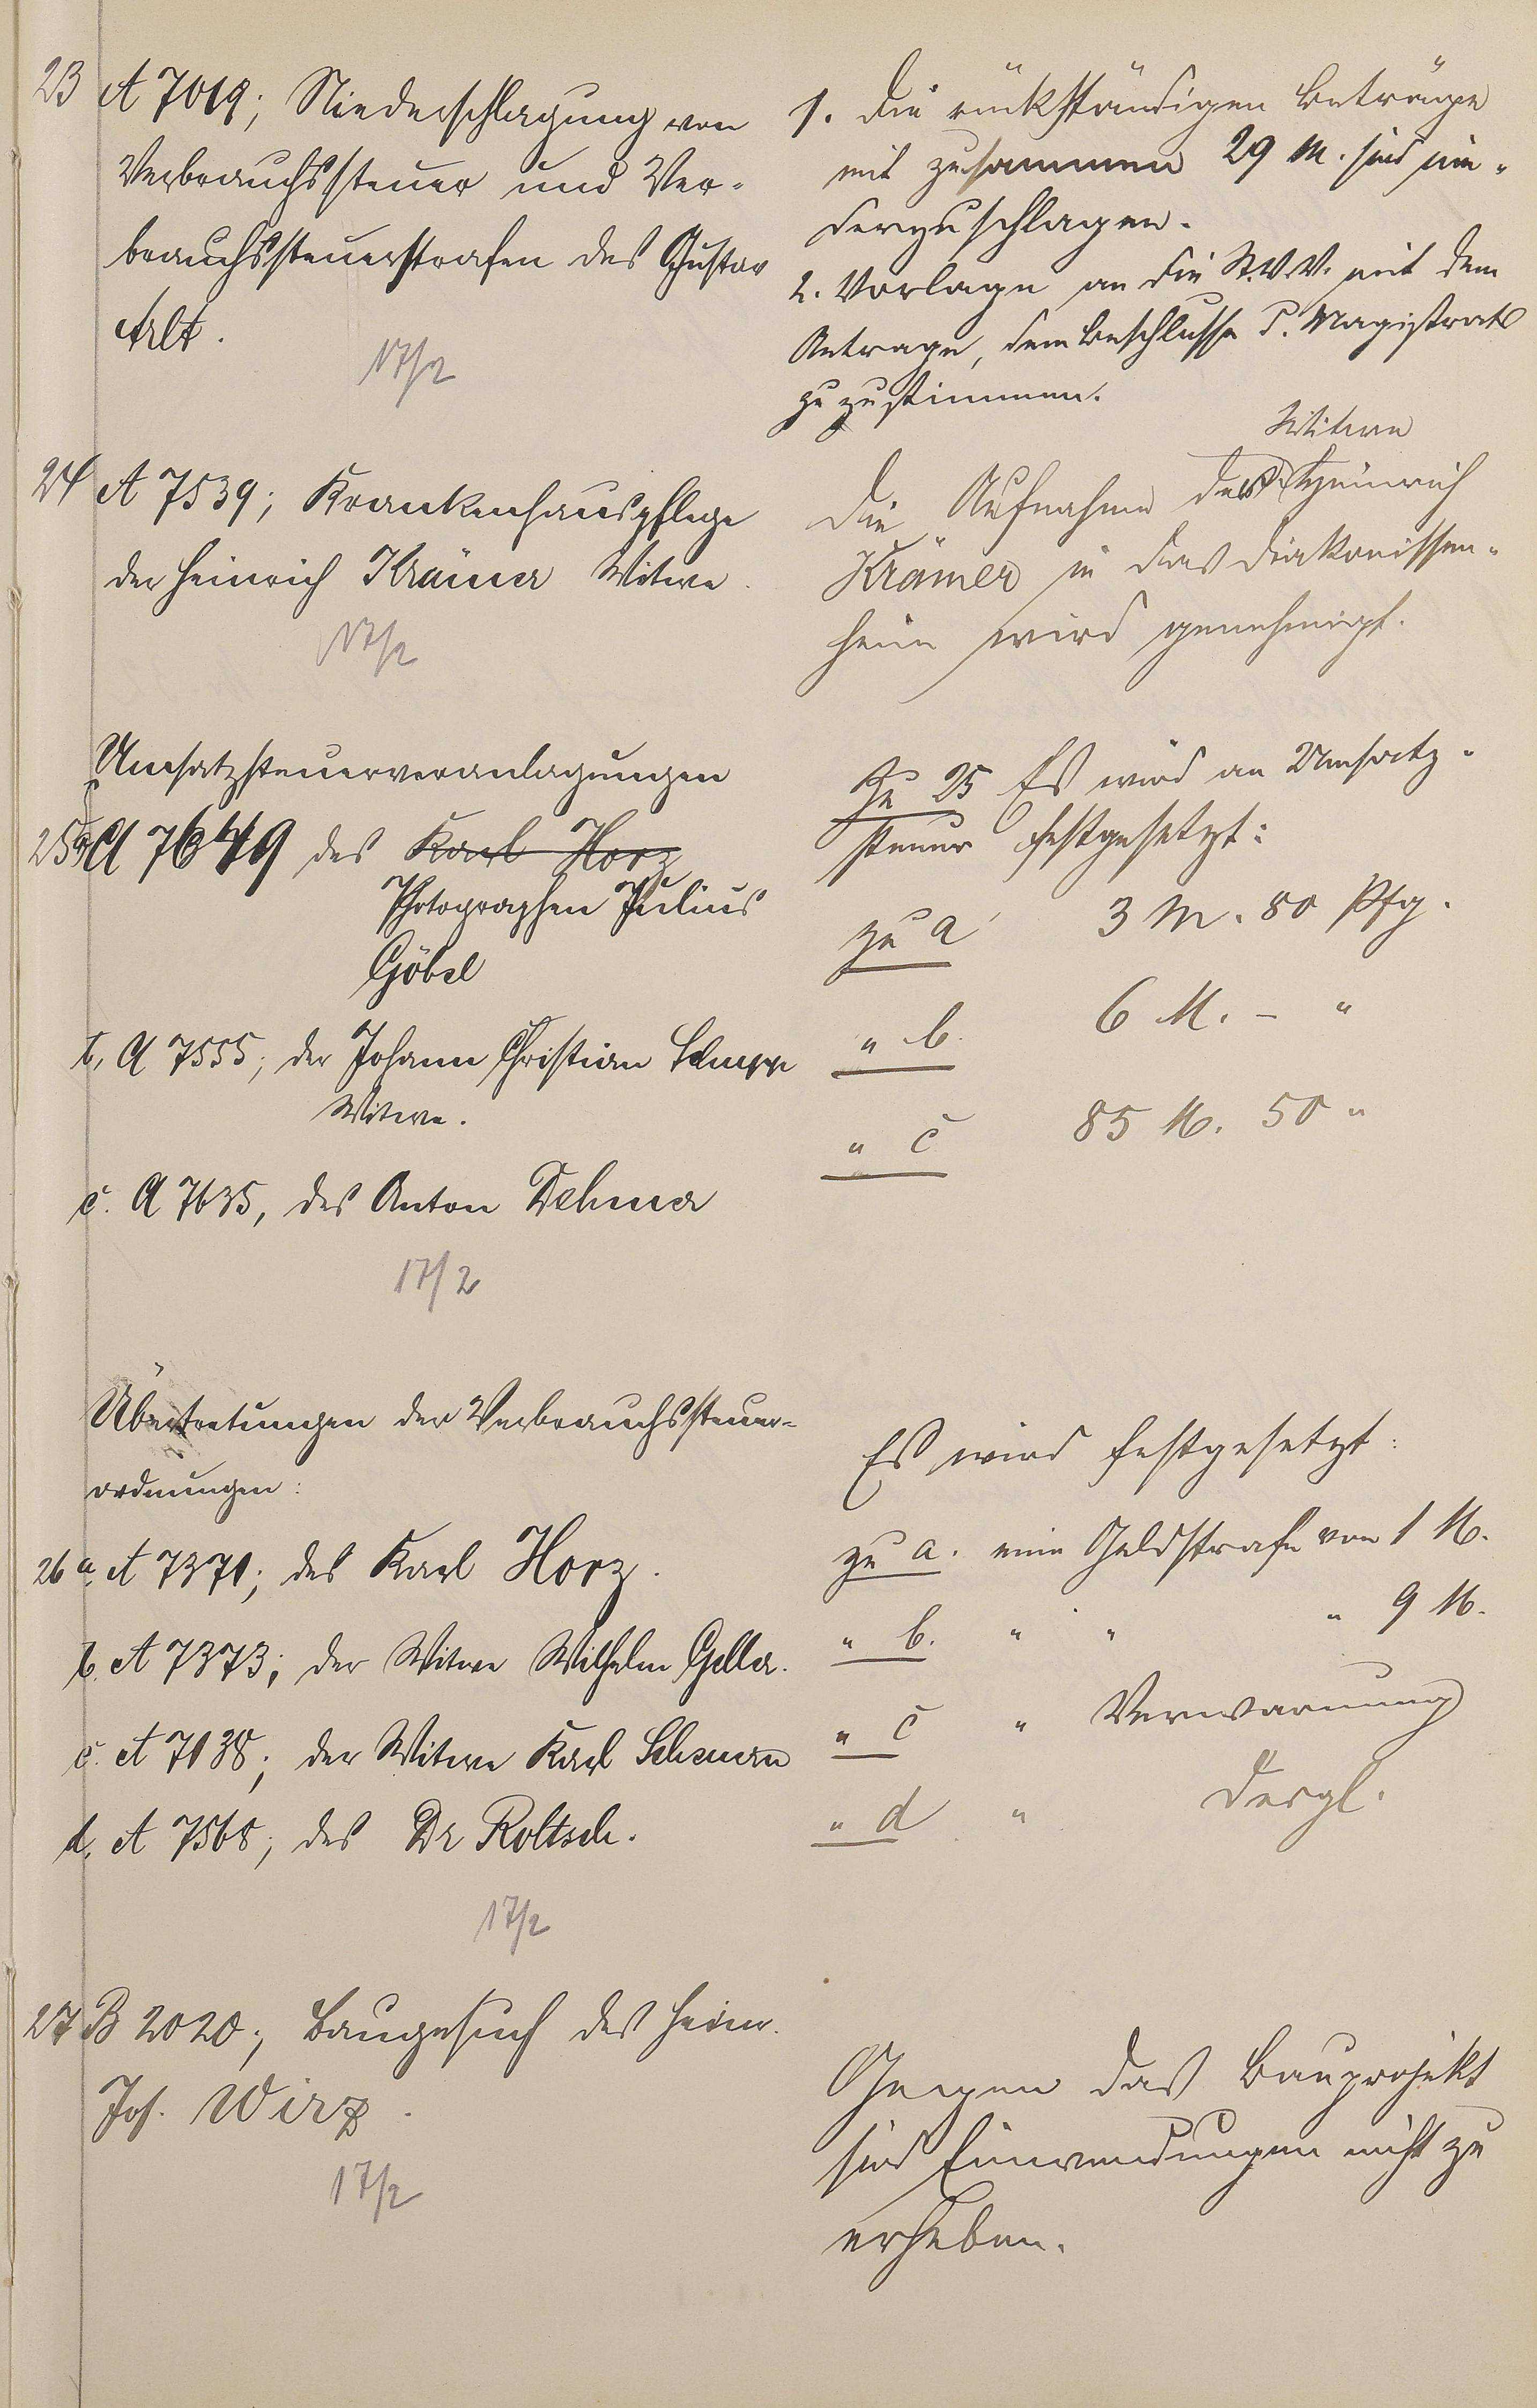 23 A 7019; Niederschlagung von
Verbrauchssteuer und Ver-
brauchssteuerstrafen des Gustav
Arlt.
17/2
1. Die rückständigen Beträge
mit zusammen 29 M. sind nie-
derzuschlagen.
2. Vorlage an die St.V.V. mit dem
Antrage, dem Beschlusse d. Magistrats
zuzustimmen.
24 A 7539; Krankenhauspflege
der Heinrich Krämer Witwe.
17/2
Witwe
Die Aufnahme der Heinrich
Krämer in das Diakonissen-
heim wird genehmigt.
Umsatzsteuerveranlagungen
25a) A 7649 des Karl Horz
Photographen Julius
Göbel
b, A 7555; der Johann Christian
Witwe.
c. A 7635, des Anton Dehmer
17/2
Zu 25 Es wird an Umsatz-
steuer festgesetzt:
zu a 3 M. 80 Pfg.
" b. 6 M. – "
" c 85 M. 50 "
Übertretungen der Verbrauchssteuer-
ordnungen:
26 a. A 7371; des Karl Horz.
b. A 7373; der Witwe Wilhelm Geller.
c. A 7138; der Witwe Karl
d. A 7568; des Dr Roltsch.
17/2
Es wird festgesetzt:
zu a. eine Geldstrafe von 1 M.
" b. " " " 9 M.
" c " Verwarnung
" d " dergl.
27 B 2020; Baugesuch des Heinr.
Jos. Wirz.
17/2
Gegen das Bauprojekt
sind Einwendungen nicht zu
erheben.